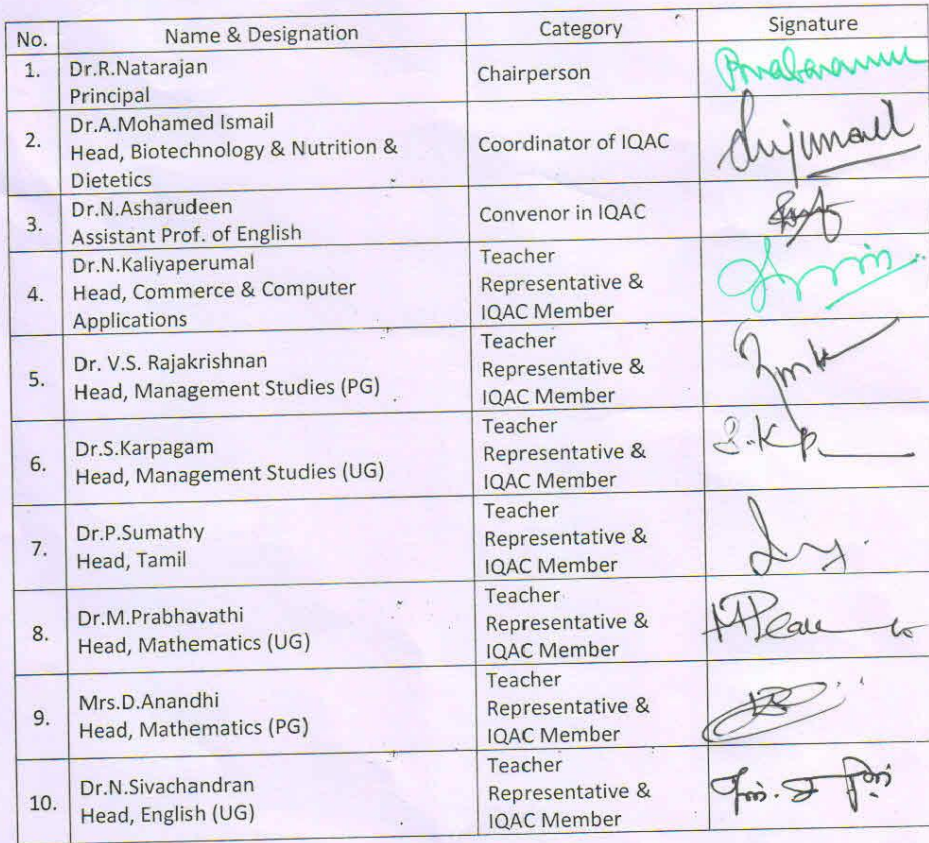 No. Name & Designation Category Signature
1. Dr.R.Natarajan
Principal
Chairperson
2. Dr.A.Mohamed Ismail
Head, Biotechnology & Nutrition &
Dietetics
Coordinator of IQAC
3. Dr.N.Asharudeen
Assistant Prof. of English
Convenor in IQAC
4. Dr.N.Kaliyaperumal
Head, Commerce & Computer
Applications
Teacher
Representative &
IQAC Member
5. Dr. V.S. Rajakrishnan
Head, Management Studies (PG)
Teacher
Representative &
IQAC Member
6. Dr.S.Karpagam
Head, Management Studies (UG)
Teacher
Representative &
IQAC Member
7. Dr.P.Sumathy
Head, Tamil
Teacher
Representative &
IQAC Member
8. Dr.M.Prabhavathi
Head, Mathematics (UG)
Teacher
Representative &
IQAC Member
9. Mrs.D.Anandhi
Head, Mathematics (PG)
Teacher
Representative &
IQAC Member
10. Dr.N.Sivachandran
Head, English (UG)
Teacher
Representative &
IQAC Member